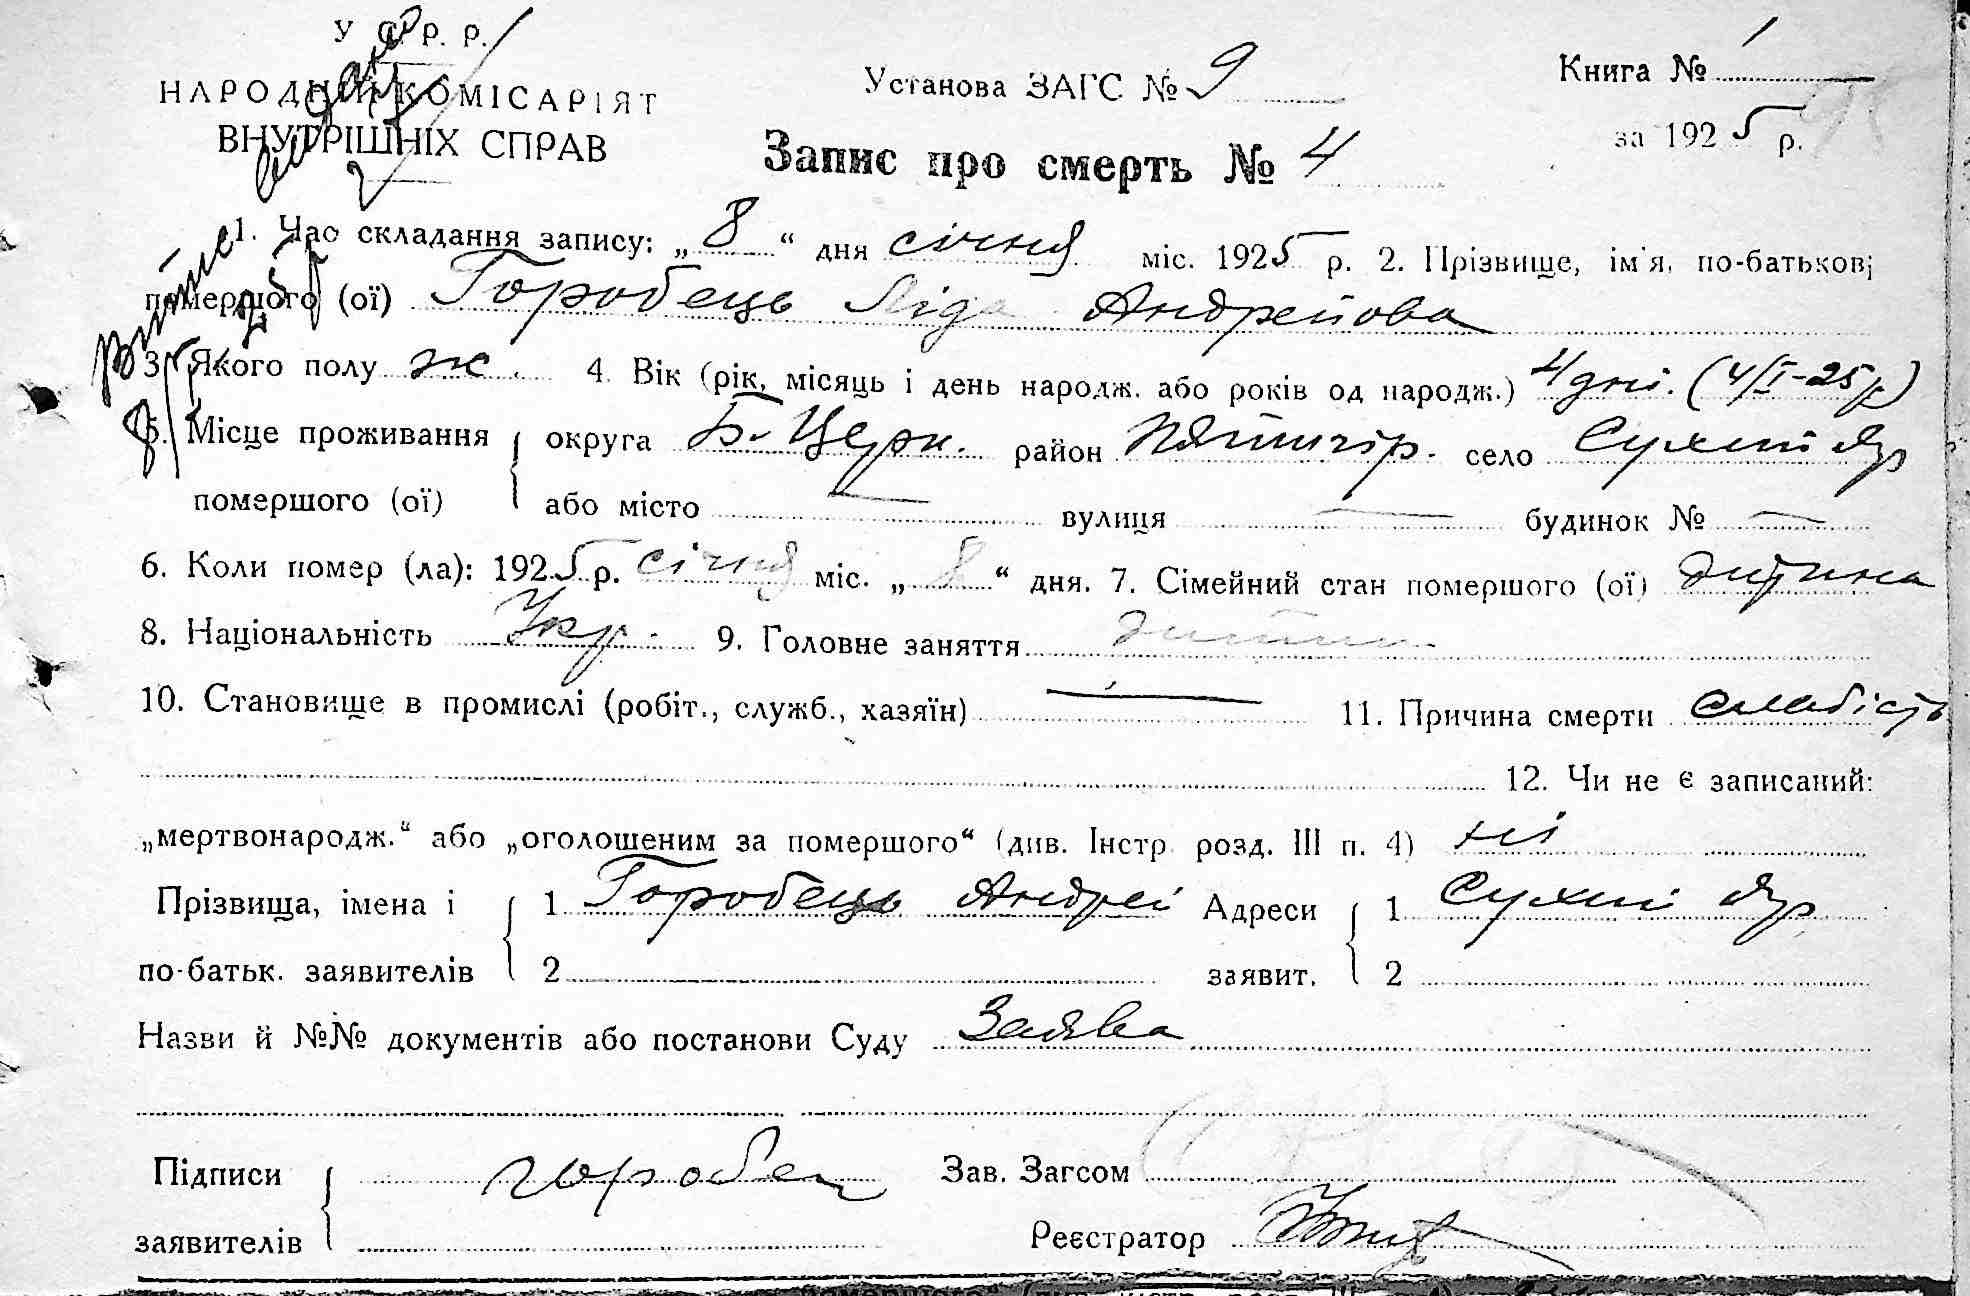 У С. Р. Р.
НАРОДНІЙ КОМІСАРІЯТ
ВНУТРІШНІХ СПРАВ
Установа ЗАГС № 9
Книга № 1
за 1925 р.
Запис про смерть № 4
1. Час складання запису: „8“ дня січня міс. 1925 р. 2. Прізвище, ім'я, по-батькові
помершого (ої) Горобець Ліда Андрейова
3. Якого полу ж. 4. Вік (рік, місяць і день народж. або років од народж.) 4 дні. (4/I-25р)
5. Місце проживання округа Б. Церк. район Пятигір. село Сухий Яр
помершого (ої) або місто — вулиця — будинок № —
6. Коли помер (ла): 1925 р. січня міс. „8“ дня. 7. Сімейний стан помершого (ої) дитина
8. Національність Укр. 9. Головне заняття
10. Становище в промислі (робіт., служб., хазяїн) — 11. Причина смерти слабість
12. Чи не є записаний:
„мертвонародж.“ або „оголошеним за помершого“ (див. Інстр. розд. III п. 4) ні
Прізвища, імена і 1 Горобець Андрей Адреси 1 Сухий Яр
по-батьк. заявителів 2 заявит. 2
Назви й №№ документів або постанови Суду Заява
Підписи горобец Зав. Загсом
заявителів Реєстратор